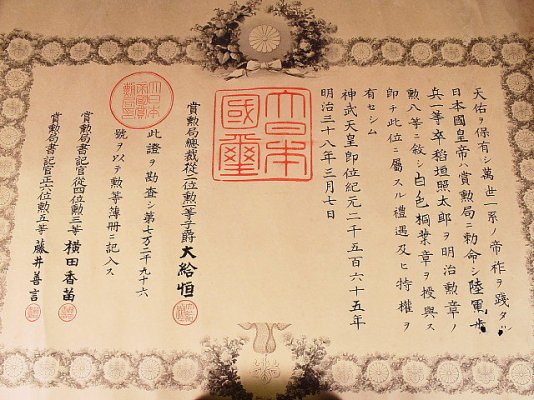 天佑ヲ保有シ萬世一系ノ帝祚ヲ踐タル
日本國皇帝ハ賞勲局ニ勅命シ陸軍歩
兵一等卒稻垣照太郎ヲ明治勲章ノ
勲八等ニ敍シ白色桐葉章ヲ授與ス
即チ此位ニ屬スル禮遇及ヒ特權ヲ
有セシム
神武天皇即位紀元二千五百六十五年
明治三十八年三月七日
大日本
國璽
賞勲局總裁從二位勲一等子爵大給恒
此證ヲ勘査シ第七万二千九十六
號ヲ以テ勲等簿册ニ記入ス
賞勲局書記官從四位勲三等横田香苗
賞勲局書記官正六位勲五等藤井善言